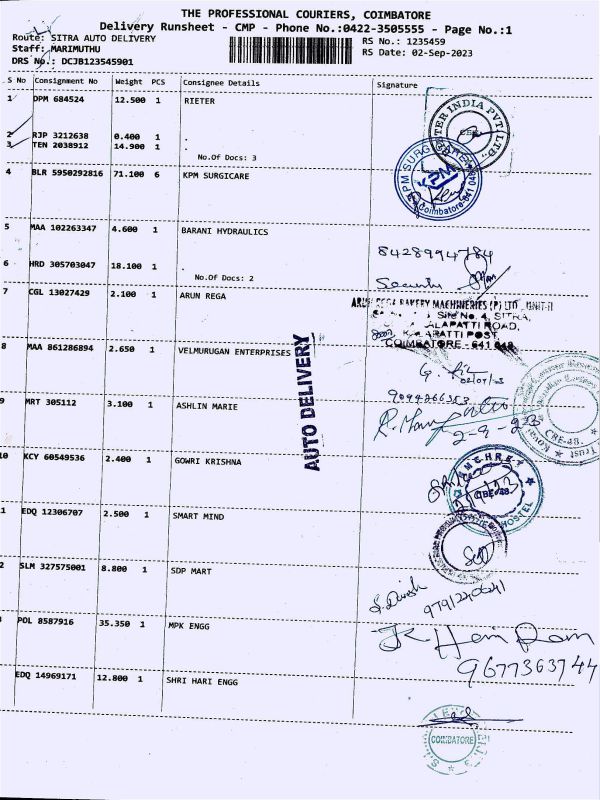 THE PROFESSIONAL COURIERS, COIMBATORE
Delivery Runsheet - CMP - Phone No.:0422-3505555 - Page No.:1
Route: SITRA AUTO DELIVERY
RS No.: 1235459
Staff: MARIMUTHU
RS Date: 02-Sep-2023
DRS No.: DCJB123545901
S No Consignment No Weight PCS Consignee Details Signature
1 DPM 684524 12.500 1 RIETER
2 RJP 3212638 0.400 1 .
3 TEN 2038912 14.900 1 .
No.Of Docs: 3
4 BLR 5950292816 71.100 6 KPM SURGICARE
KPM
Coimbatore-641
5 MAA 102263347 4.600 1 BARANI HYDRAULICS
8428994784
6 HRD 305703047 18.100 1 .
No.Of Docs: 2
Security
7 CGL 13027429 2.100 1 ARUN REGA
BAKERY MACHINERIES (P) LTD., UNIT-II
SITRA,
ROAD,
POST,
COIMBATORE - 641
8 MAA 861286894 2.650 1 VELMURUGAN ENTERPRISES
AUTO DELIVERY
9 MRT 305112 3.100 1 ASHLIN MARIE
2-9-23
CBE-48.
10 KCY 60549536 2.400 1 GOWRI KRISHNA
CBE-48
HOSTEL
1 EDQ 12306707 2.500 1 SMART MIND
2 SLM 327575001 8.800 1 SDP MART
S. Dinesh
POL 8587916 35.350 1 MPK ENGG
9677363744
EDQ 14969171 12.800 1 SHRI HARI ENGG
COIMBATORE